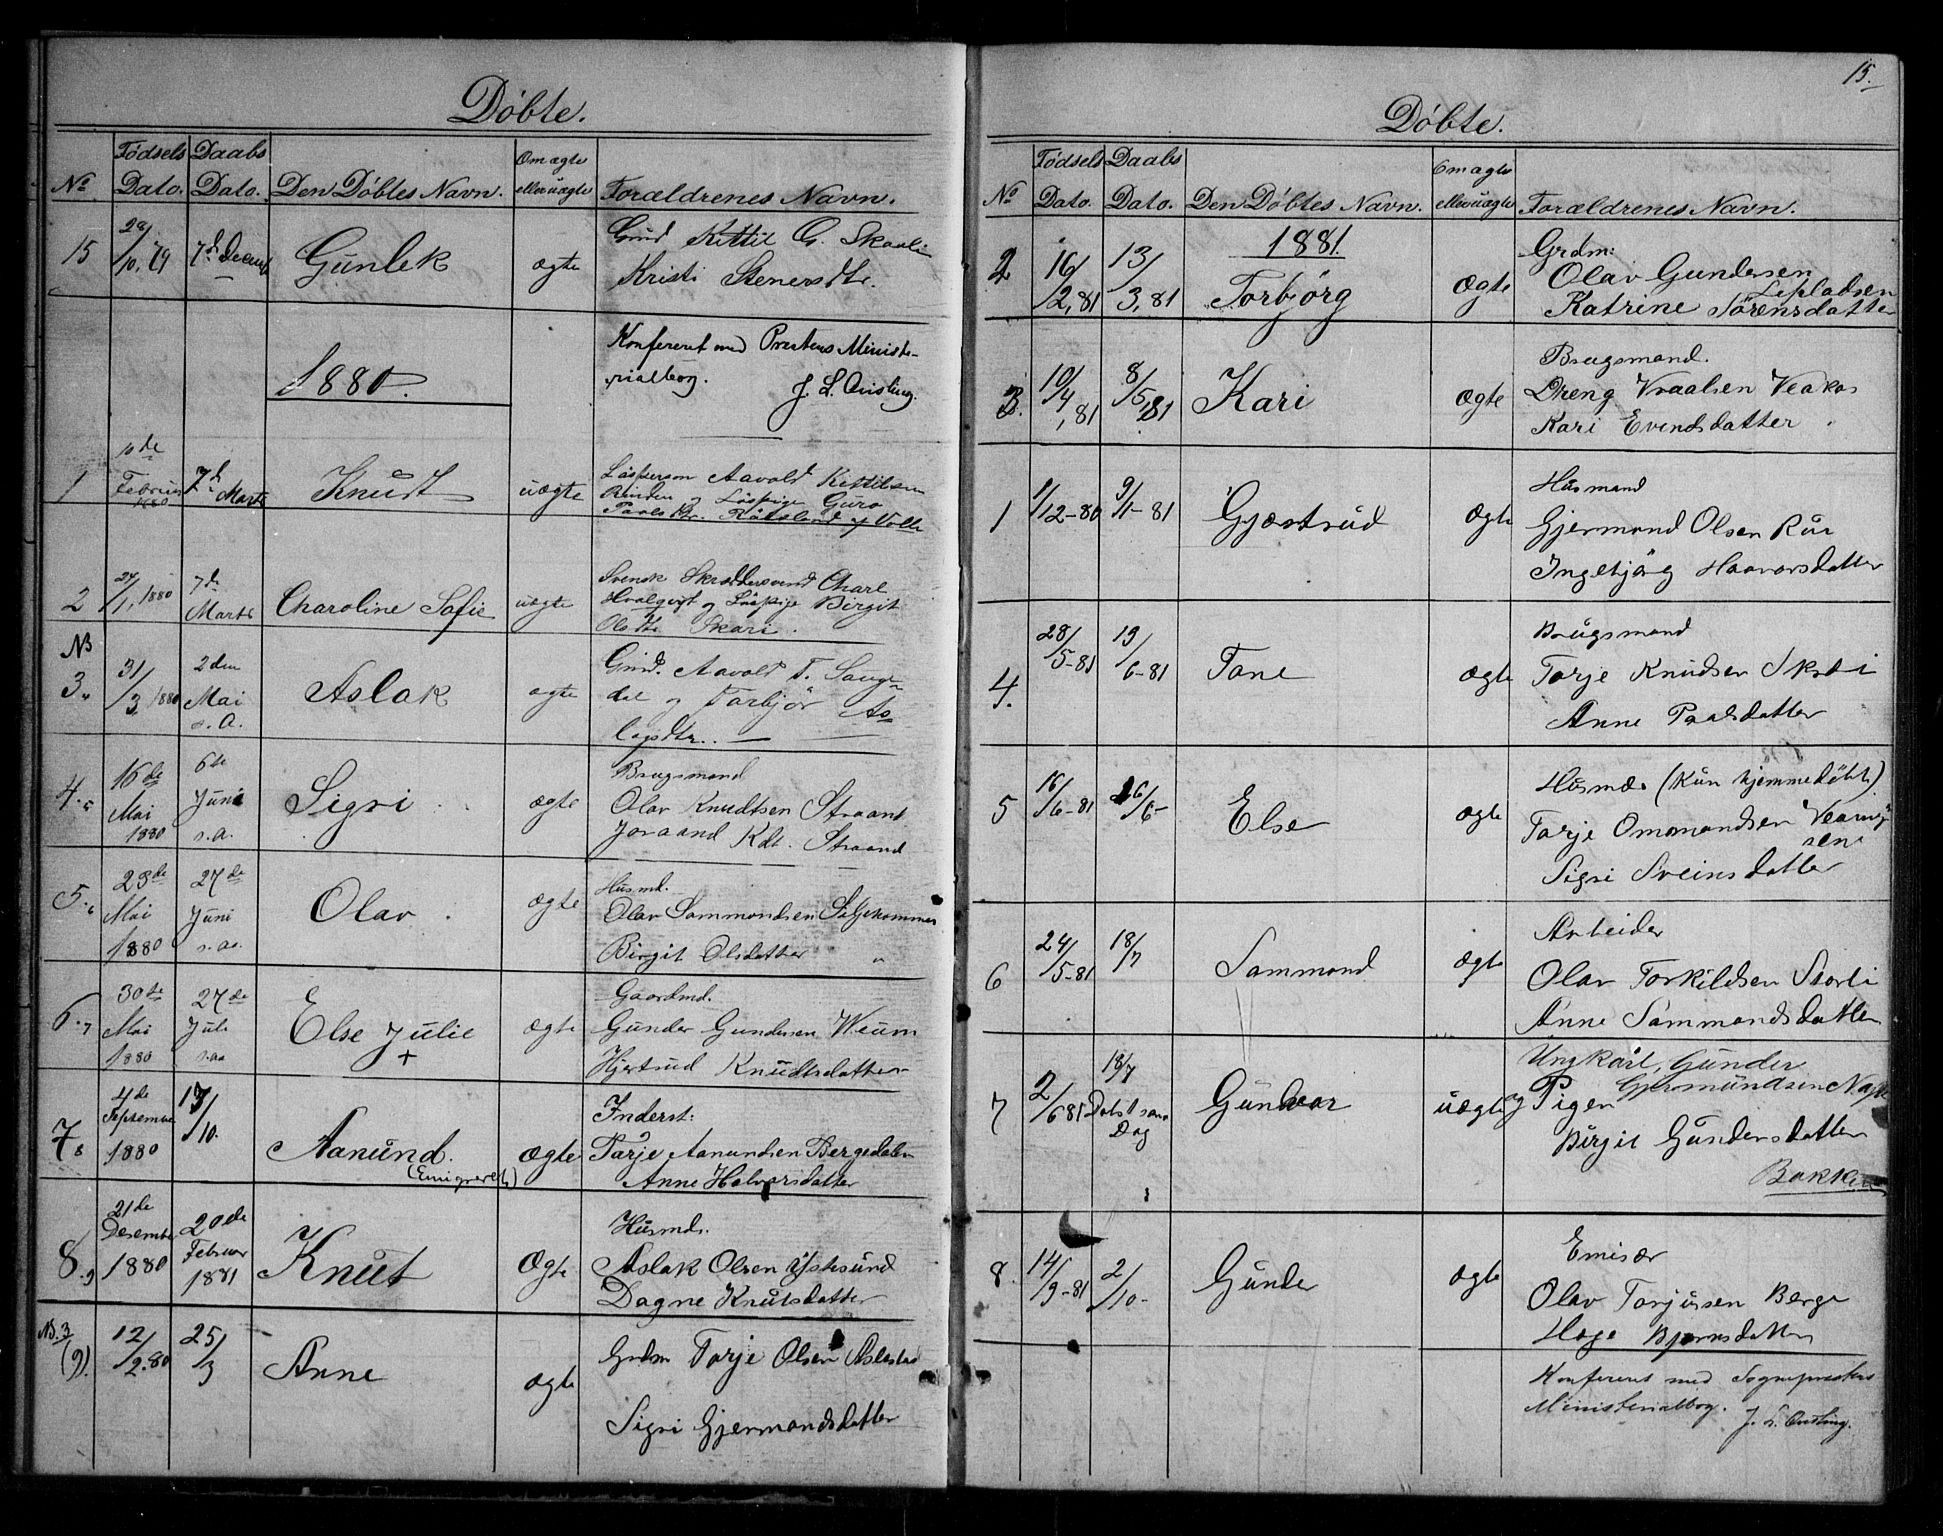 Døbte.
No Fødsels Dato. Daabs Dato. Den Døbtes Navn. Om ægte eller uægte Forældrenes Navn.
15 28/10.79 7d Decemb Gunlek ægte Grmd Kittil G. Skaali
Kristi Stenersdtr.
1880.
Konfereret med Prestens Ministe-
rialbog.
J. L. Qvisling.
1 10de Februar 1880 7d Marts Knudt uægte Løsperson Aavold Kittilsen
Rinden og Løspige Guro
Paalsdtr.
2 24/1, 1880 7de Marts Charoline Sofie uægte Svensk Skræddersvend Charl
Hvalqvist og Løspige Birgit
Olsdtr Skari.
NB
3 31/3 1880 2den Mai s.A. Aslak ægte Grmd. Aavold T. Sauge-
dal og Torbjør As-
lagsdtr.
4.5 16de Mai 1880 6te Juni s.a. Sigri ægte Brugsmand
Olav Knudtsen Straand
Joraand Kdt. Straand
5.6 23de Mai 1880 27de Juni s.a. Olav ægte Husmd.
Olav Sammondsen Seljekommen
Birgit Olsdatter "
6.7 30te Mai 1880 27de Juli s.aa Else Julie + ægte Gaardmd.
Gunder Gundersen Weum
Hjertrud Knudtsdatter
7.8 4de September 1880 17/10. Aanund. (Emigreret) ægte Inderst:
Tarje Aanundsen Bergedalen
Anne Halvorsdatter
8.9 21de Desember 1880 20de Februar 1881 Knut Ægte Husmd.
Aslak Olsen Ystesund
Dagne Knutsdatter
NB. 3 (9). 12/2.80 25/3 Anne ægte Grdm Tarje Olsen Aslestad
Sigri Gjermondsdatter
15.
Døbte.
No Fødsels Dato. Daabs Dato. Den Døbtes Navn. Om ægte eller uægte Forældrenes Navn.
1881.
2 16/2,81 13/3,81 Torbjörg Ægte Grdm:
Olav Gundersen
Lepladsen
Katrine Sörensdatter
3. 10/4,81 8/5 81 Kari Ægte Brugsmand.
Dreng Vraalsen Veakas
Kari Evendsdatter
1 1/12-80 9/1-81 Gjærtrud Ægte Husmand
Gjermond Olsen Rui
Ingebjörg Haavorsdatter
4. 28/5-81 19/6-81 Tone Ægte Brugsmand
Tarje Knudsen Skori
Anne Paalsdatter
5 16/6-81 26/6- Else ægte Husmd. (kun hjemmedøbt)
Tarje Omomondsen Veamy-
sen
Sigri Sveinsdatter
6 24/5-81 18/7 Sammond ægte Arbeider
Olav Torkildsen Storli
Anne Sammondsdatter
7 2/6 81 18/7 Døbt sama Dag Gunvor uægte Ungkarl, Gunder
Gjermundsen Nape
og Pigen
Birgit Gundersdatter
Bakken
8 14/9-81 2/10- Gunder ægte Emisær
Olav Torjussen Berge
Hæge Bjørnsdatter
Konfereret med Sogneprestens
Ministerialbog.
J. L. Qvisling.